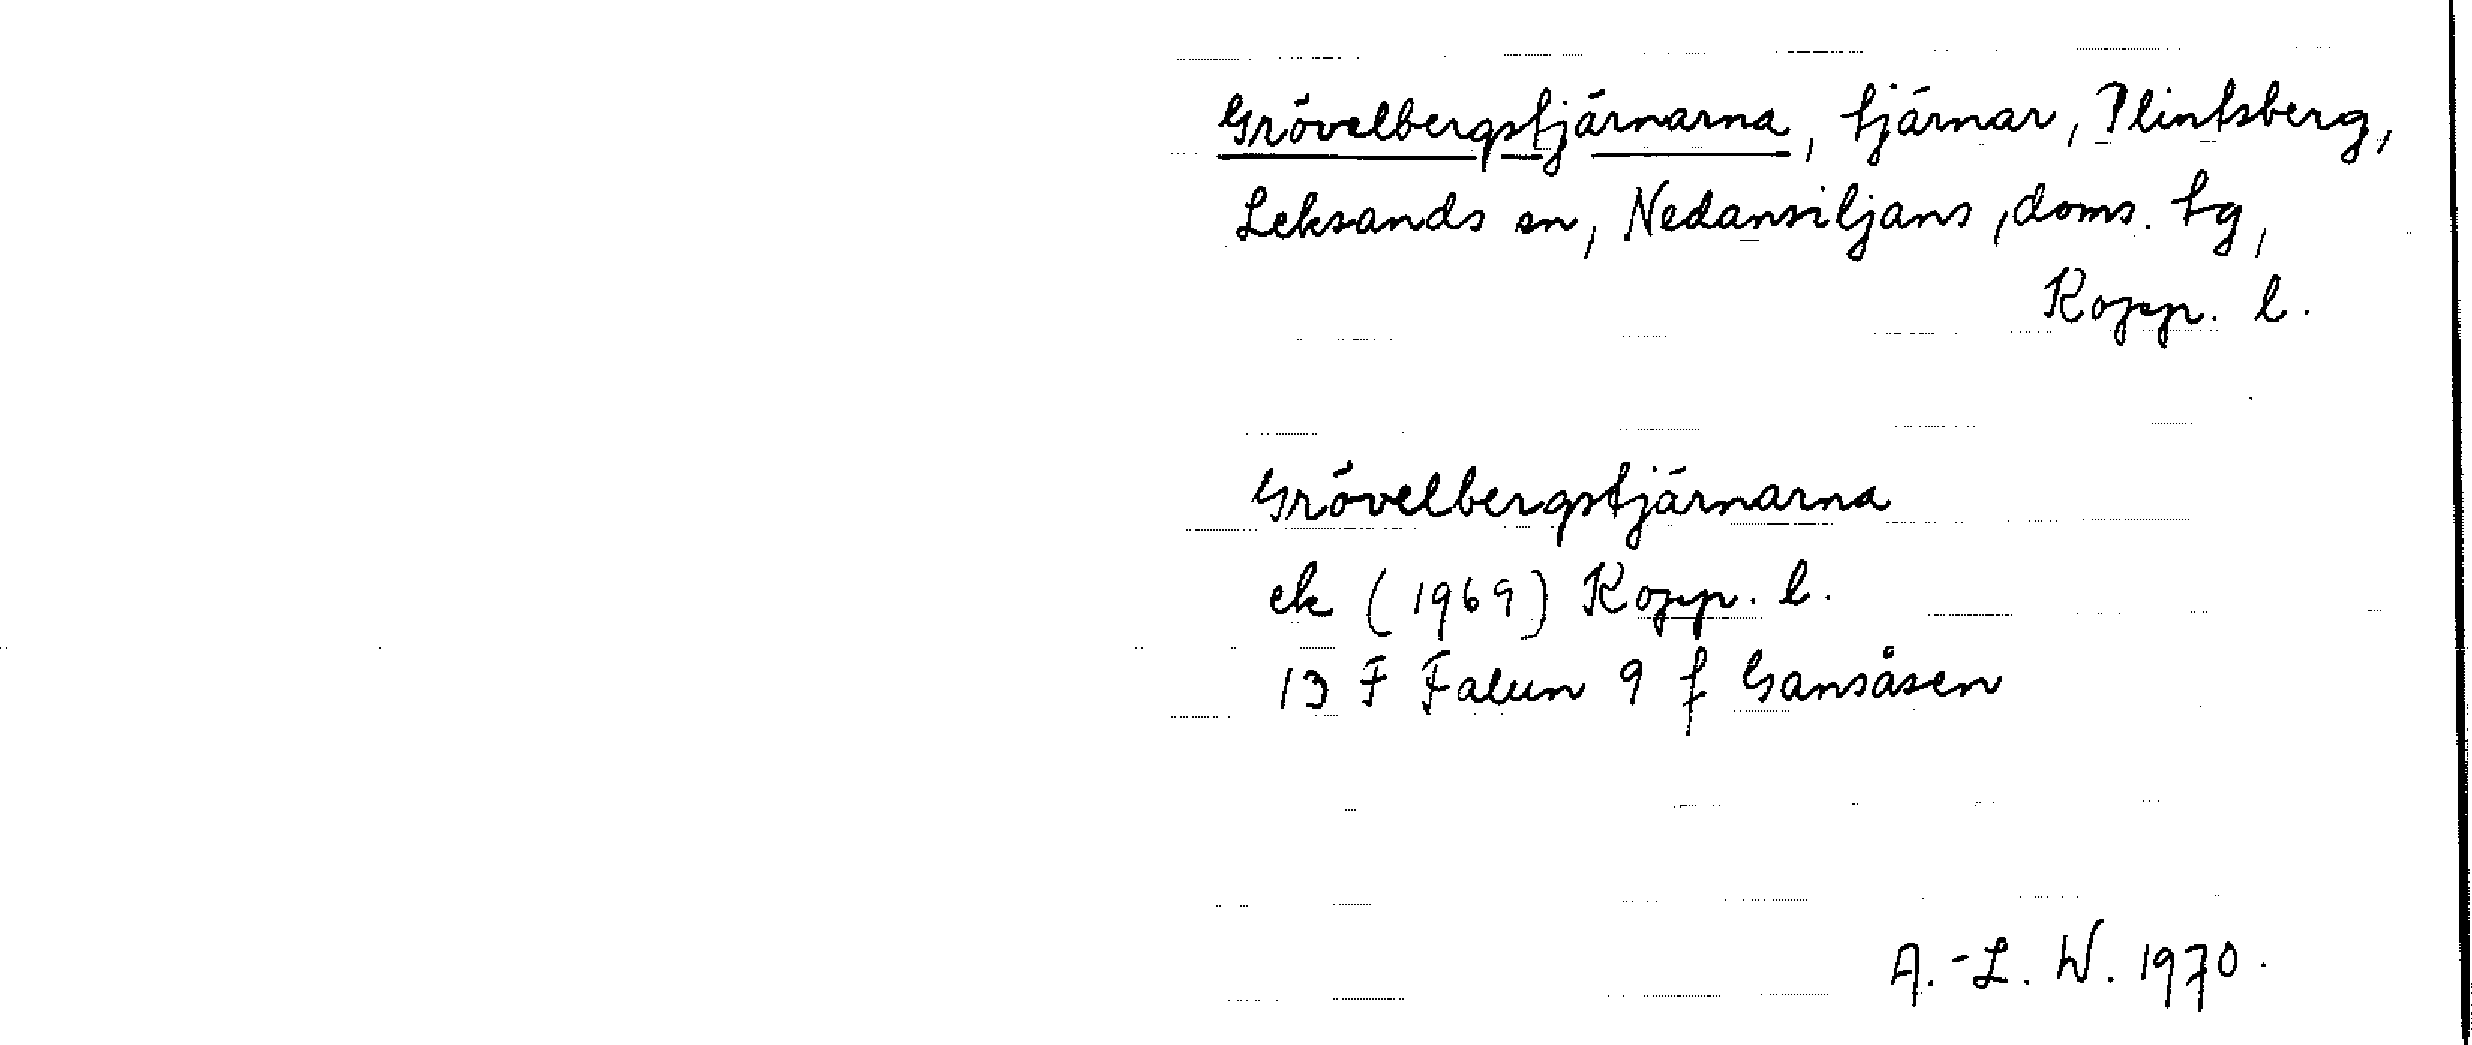 Grövelbergstjärnarna, tjärnar, Plintsberg,
Leksands sn, Nedansiljans doms. tg,
Kopp. l.
Grövelbergstjärnarna
ek (1969) Kopp. l.
13 F Falun 9 f Gansåsen
A.-L. W. 1970.